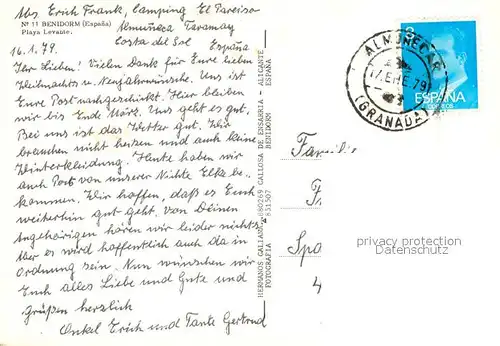 Abs. Erich Frank, Camping El Paraiso
Nº 11 BENIDORM (España)
Playa Levante.
Almuñeca Taramay
Costa del Sol España
16.1.79.
Ihr Lieben! Vielen Dank für Eure lieben
Weihnachts u. Neujahrwünsche. Uns ist
Eure Post nachgeschickt. Hier bleiben
wir bis Ende März. Uns geht es gut.
Bei uns ist das Wetter gut. Wir
brauchen nicht heizen und auch keine
Winterkleidung. Heute haben wir
auch Post von unserer Nichte Elke be-
kommen. Wir hoffen, daß es Euch
weiterhin gut geht. Von Deinen
Angehörigen hören wir leider nichts.
Aber es wird hoffentlich auch da in
Ordnung sein. Nun wünschen wir
Euch alles Liebe und Gute und
grüßen herzlich
Onkel Erich und Tante Gertrud
HERMANOS GALIANA - 880269 CALLOSA DE ENSARRIA - ALICANTE
FOTOGRAFIA 851507 BENIDORM ESPAÑA
ALMUÑECAR
17.ENE.79
(GRANADA)
ESPAÑA
CORREOS
Famili
Spo
4
privacy protection
Datenschutz